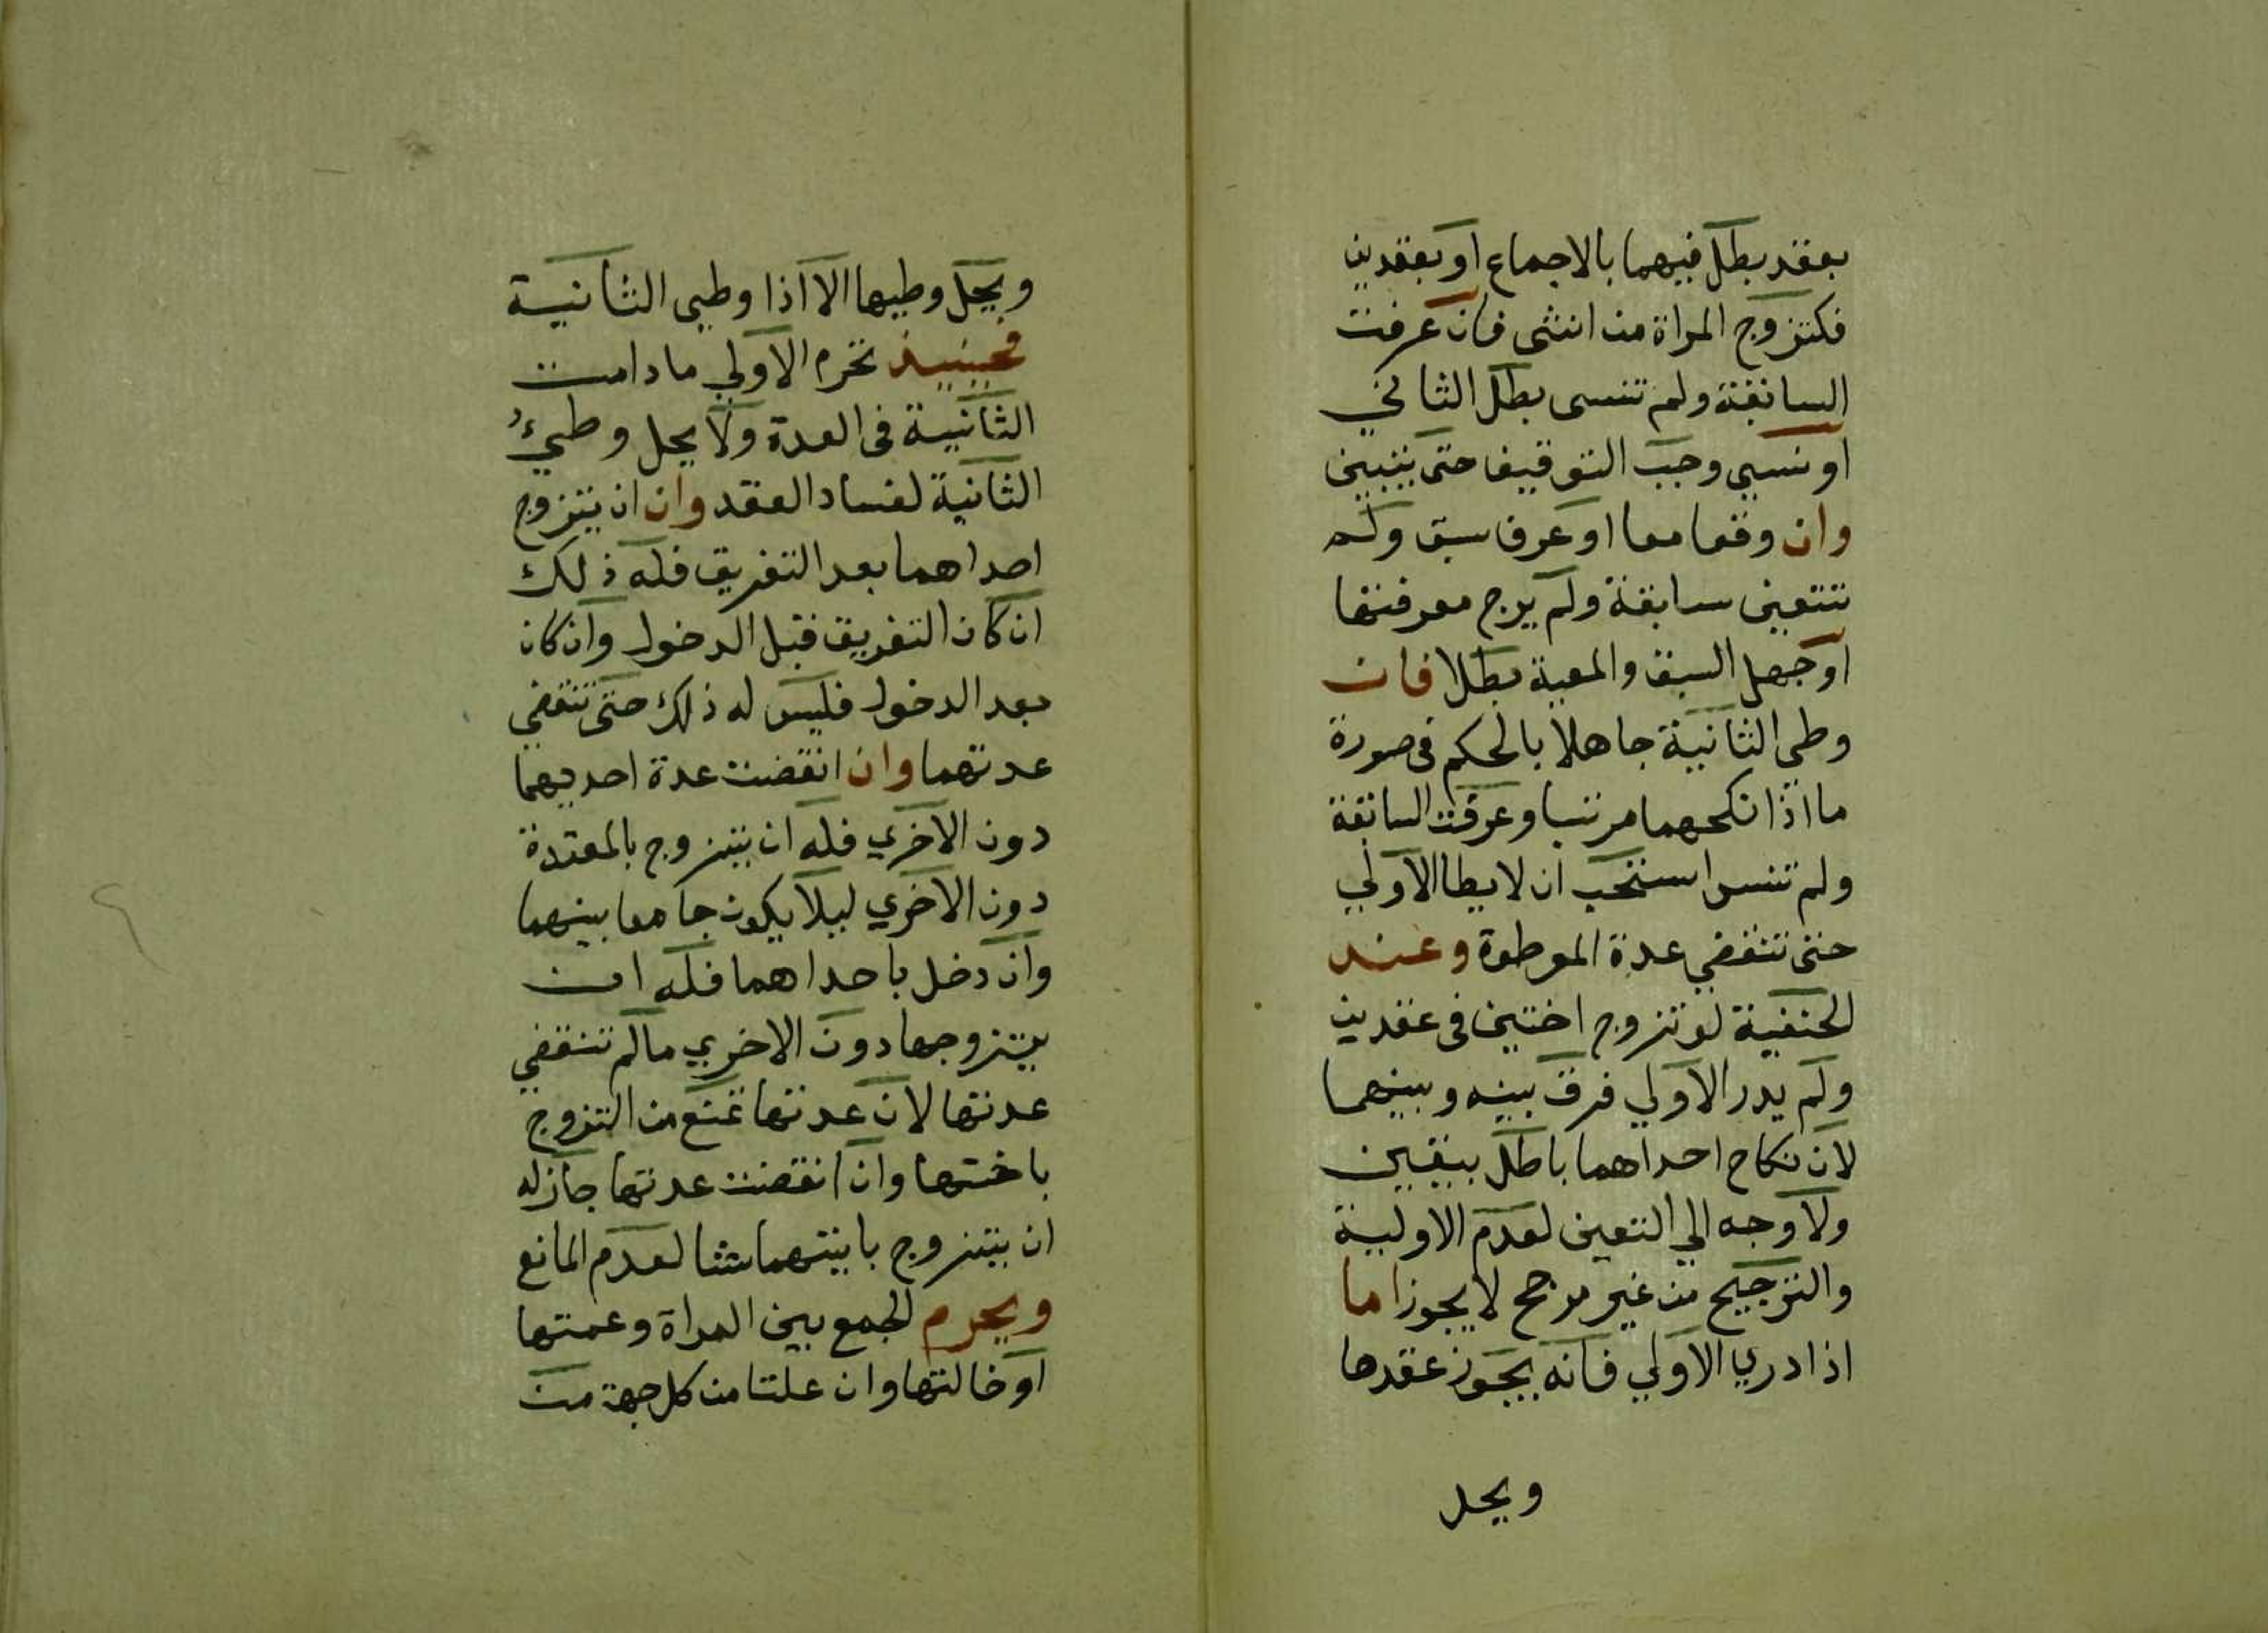 بعقد بطل فيهما بالاجماع او بعقدين
فكتزوج المراة من اثنتى فان عرفت
السابقة ولم تنسى بطل الثاني
او نسي وجب التوقيف حتى يتبين
وان وقعا معا او عرف سبق ولم
تتعين سابقة ولم يرج معرفتها
او جهل السبق والمعية بطلا فان
وطي الثانية جاهلا بالحكم في صورة
ما اذا نكحهما مرتبا وعرفت السابقة
ولم تنس استحب ان لا يطا الاولي
حتى تنقضي عدة الموطوة وعند
الحنفية لو تزوج اختين في عقدين
ولم يدر الاولي فرق بينه وبينهما
لان نكاح احداهما باطل بيقين
ولا وجه الي التعين لعدم الاولية
والترجيح من غير مرجح لا يجوز اما
اذا دري الاولي فانه يجوز عقدها
ويحل
ويحل وطيها الا اذا وطيى الثانية
فحينيذ تحرم الاولي مادامت
الثانية في العدة ولا يحل وطيءُ
الثانية لفساد العقد وان ان يتزوج
احداهما بعد التفريق فله ذلك
ان كان التفريق قبل الدخول وان كان
بعد الدخول فليس له ذلك حتى تنقضي
عدتهما وان انقضت عدة احديهما
دون الاخري فله ان يتزوج بالمعتدة
دون الاخري ليلا يكون جامعا بينهما
وان دخل باحداهما فله ان
يتزوجها دون الاخري مالم تنقضي
عدتها لان عدتها تمنع من التزوج
باختها وان انقضت عدتها جاز له
ان يتزوج بايتهما شا لعدم المانع
ويحرم الجمع بين المراة وعمتها
او خالتها وان علتا من كل جهة من